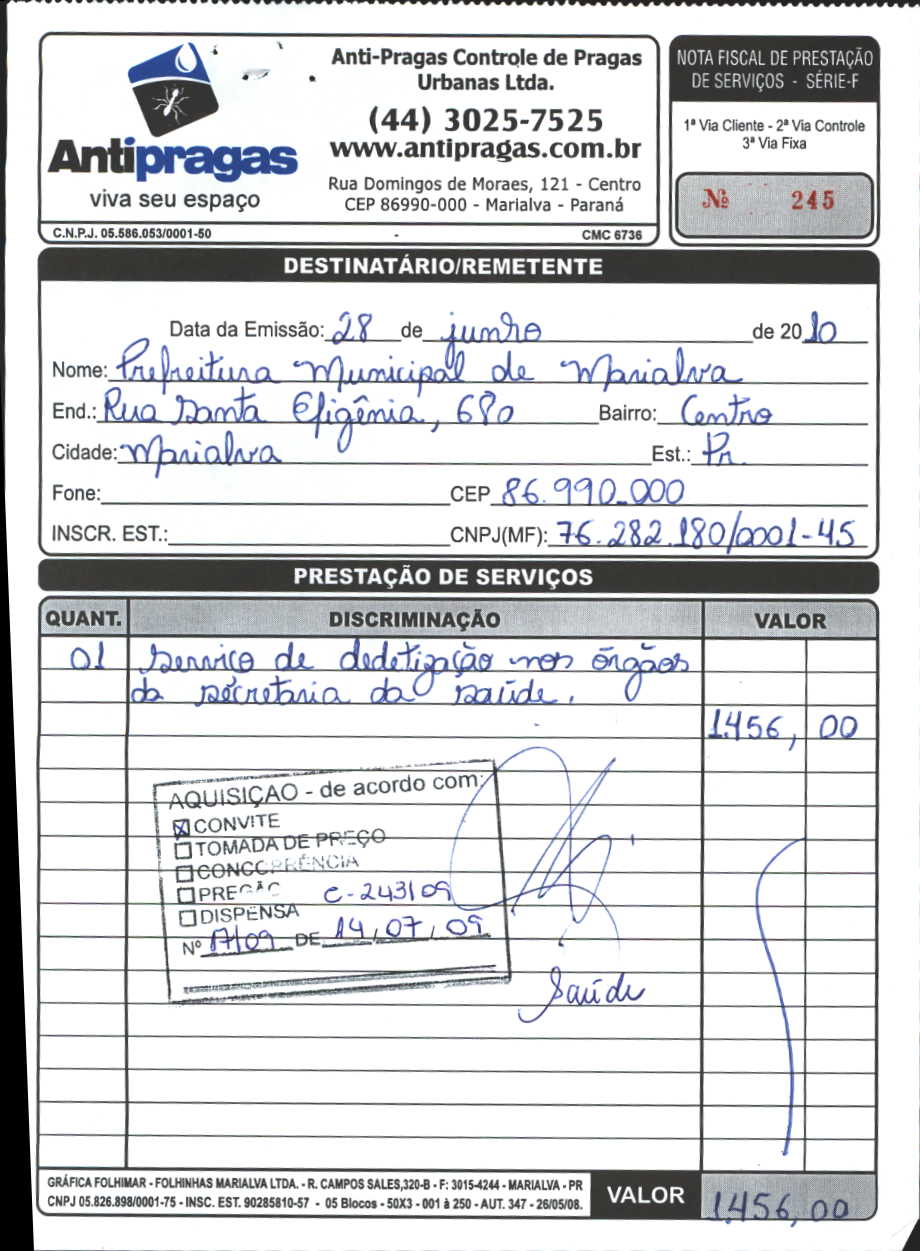 Anti-Pragas Controle de Pragas
Urbanas Ltda.
(44) 3025-7525
www.antipragas.com.br
Rua Domingos de Moraes, 121 - Centro
CEP 86990-000 - Marialva - Paraná
Antipragas
viva seu espaço
C.N.P.J. 05.586.053/0001-50 - CMC 6736
NOTA FISCAL DE PRESTAÇÃO
DE SERVIÇOS - SÉRIE-F
1ª Via Cliente - 2ª Via Controle
3ª Via Fixa
Nº 245
DESTINATÁRIO/REMETENTE
Data da Emissão: 28 de junho de 2010
Nome: Prefreitura Municipal de Marialva
End.: Rua Santa Efigênia, 680 Bairro: Centro
Cidade: Marialva Est.: Pr.
Fone: CEP 86.990.000
INSCR. EST.: CNPJ(MF): 76.282.180/0001-45
PRESTAÇÃO DE SERVIÇOS
QUANT. DISCRIMINAÇÃO VALOR
01 Serviço de dedetização nos órgãos
da secretaria da saúde.
1.456, 00
AQUISIÇAO - de acordo com:
CONVITE
TOMADA DE PREÇO
CONCORRÊNCIA
PREGÃO C-243/09
DISPENSA
Nº 17/09 DE 14, 07, 09
Saúde
GRÁFICA FOLHIMAR - FOLHINHAS MARIALVA LTDA. - R. CAMPOS SALES,320-B - F: 3015-4244 - MARIALVA - PR
CNPJ 05.826.898/0001-75 - INSC. EST. 90285810-57 - 05 Blocos - 50X3 - 001 à 250 - AUT. 347 - 26/05/08.
VALOR 1.456, 00